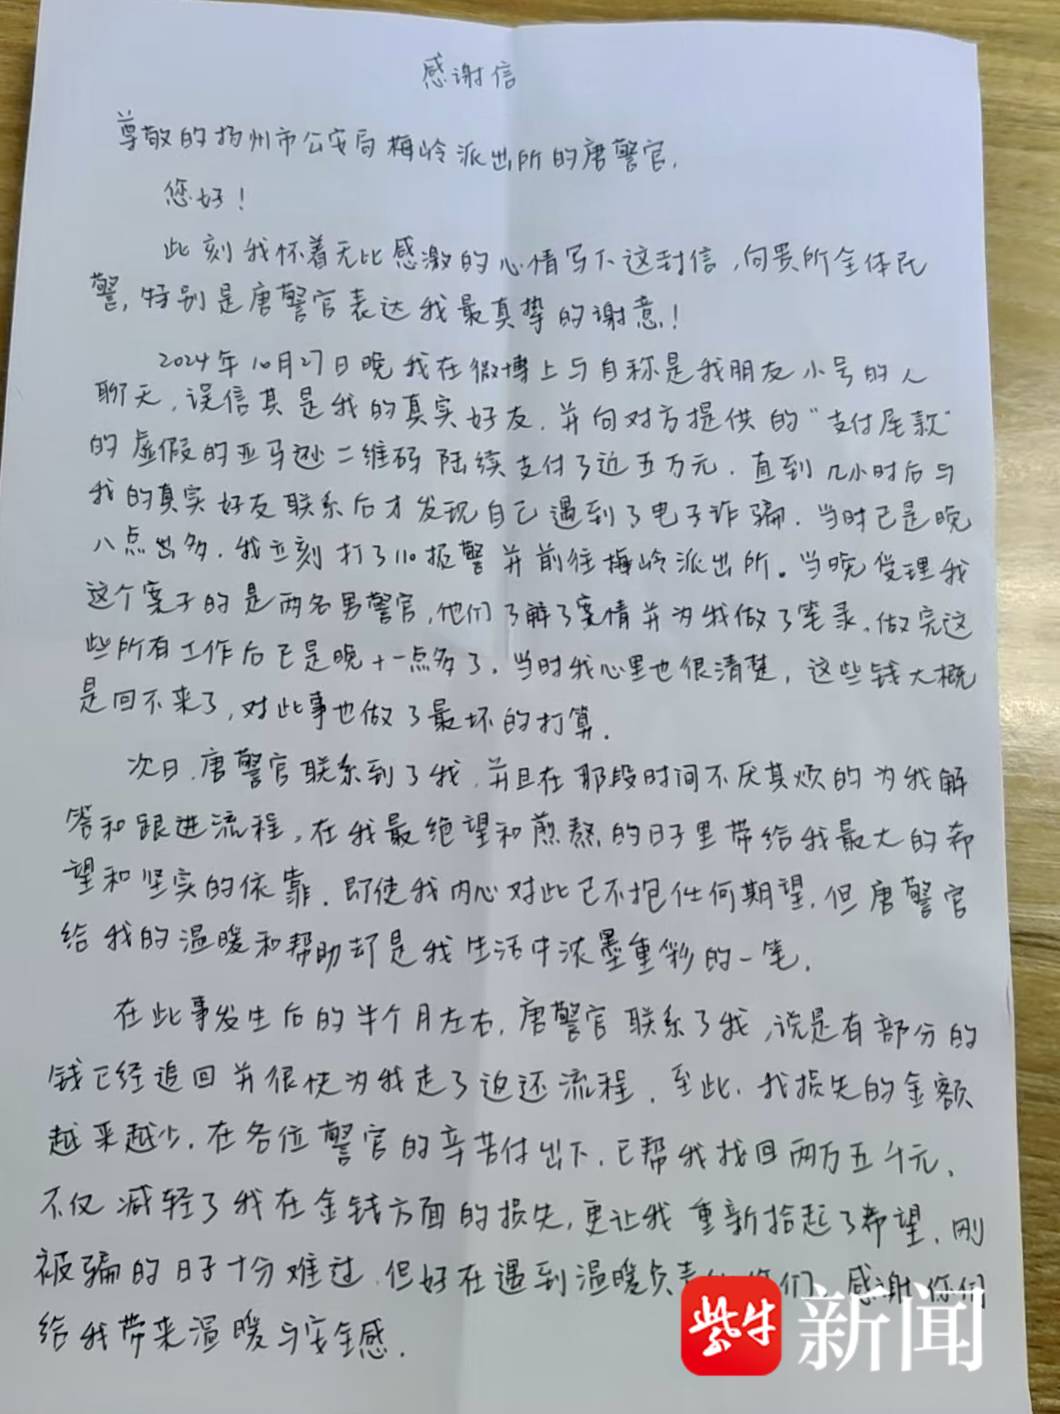 感谢信
尊敬的扬州市公安局梅岭派出所的唐警官,
您好!
此刻我怀着无比感激的心情写下这封信,向贵所全体民
警,特别是唐警官表达我最真挚的谢意!
2024年10月27日晚我在微博上与自称是我朋友小号的人
聊天,误信其是我的真实好友,并向对方提供的“支付尾款”
的虚假的亚马逊二维码陆续支付了近五万元,直到几小时后与
我的真实好友联系后才发现自己遇到了电子诈骗.当时已是晚
八点出多,我立刻打了110报警并前往梅岭派出所。当晚受理我
这个案子的是两名男警官,他们了解了案情并为我做了笔录,做完这
些所有工作后已是晚十一点多了.当时我心里也很清楚,这些钱大概
是回不来了,对此事也做了最坏的打算.
次日,唐警官联系到了我,并且在那段时间不厌其烦的为我解
答和跟进流程,在我最绝望和煎熬的日子里带给我最大的希
望和坚实的依靠.即使我内心对此已不抱任何期望,但唐警官
给我的温暖和帮助却是我生活中浓墨重彩的一笔.
在此事发生后的半个月左右,唐警官联系了我,说是有部分的
钱已经追回并很快为我走了返还流程.至此,我损失的金额
越来越少,在各位警官的辛苦付出下,已帮我找回两万五千元,
不仅减轻了我在金钱方面的损失,更让我重新拾起了希望,刚
被骗的日子十分难过,但好在遇到温暖负责的你们,感谢你们
给我带来温暖与安全感.
紫牛新闻